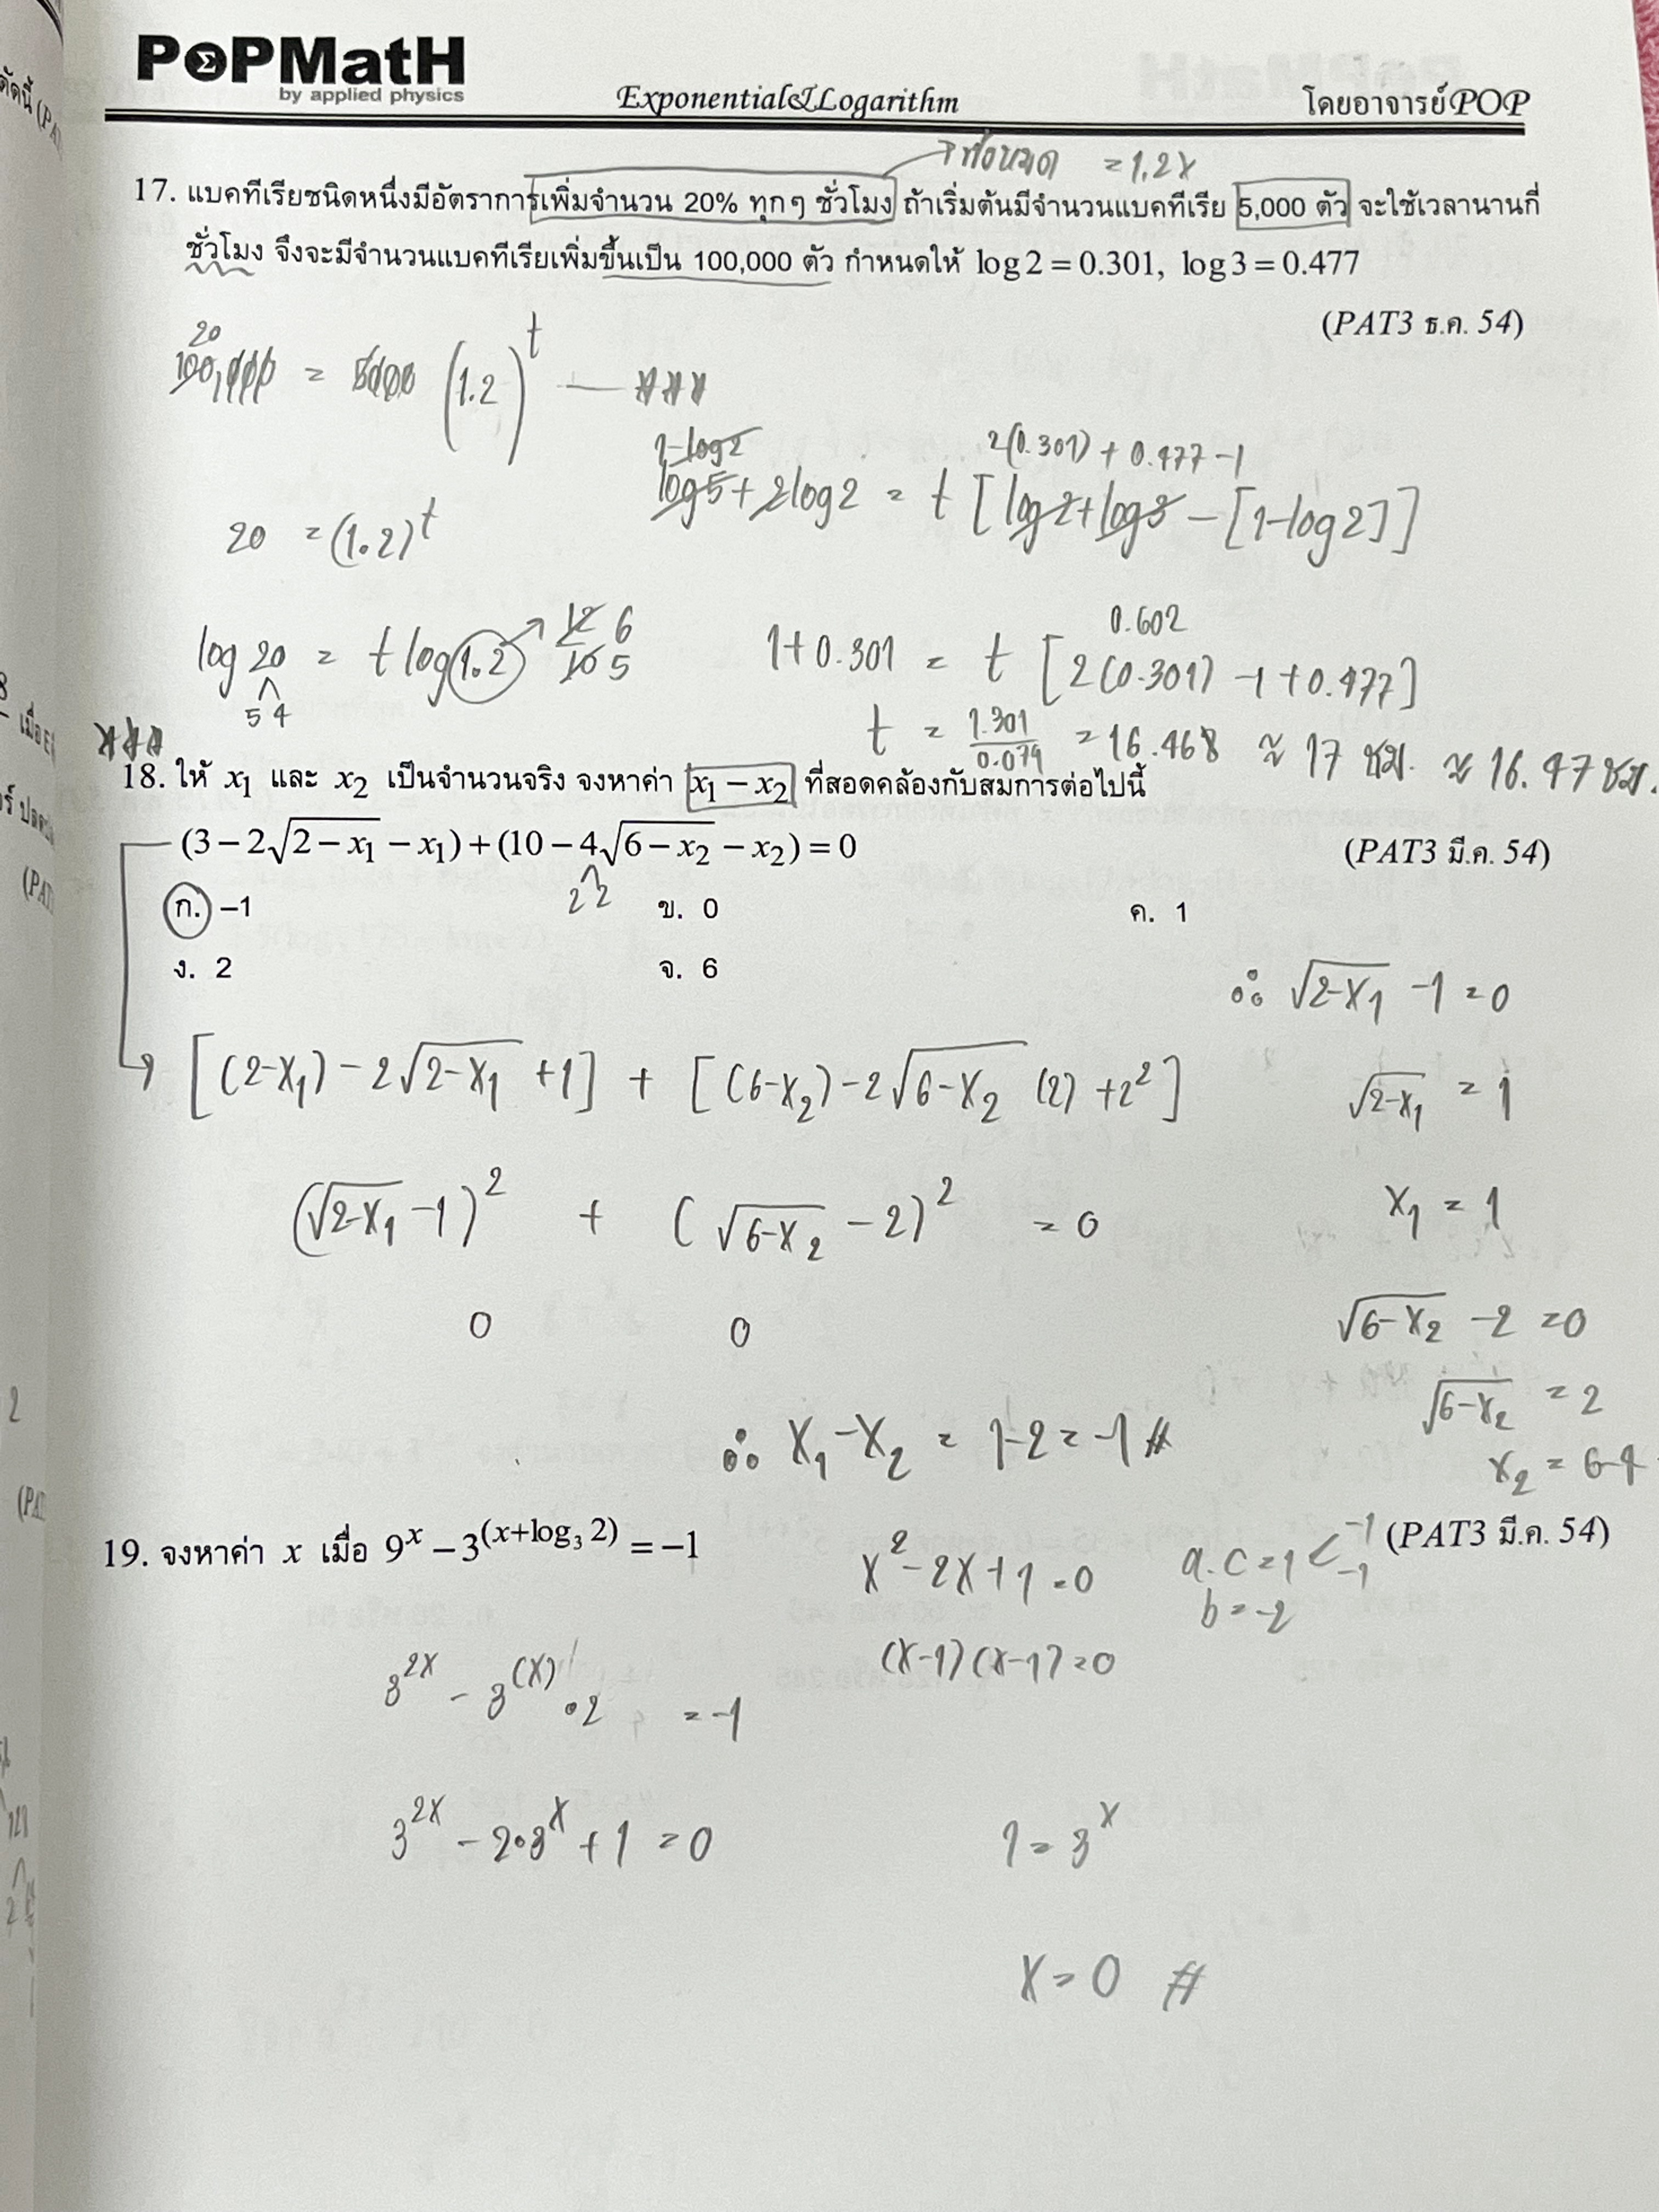 PoPMatH
by applied physics
Exponential&Logarithm
โดยอาจารย์POP
= 1.2x
17. แบคทีเรียชนิดหนึ่งมีอัตราการเพิ่มจำนวน 20% ทุกๆ ชั่วโมง ถ้าเริ่มต้นมีจำนวนแบคทีเรีย 5,000 ตัว จะใช้เวลานานกี่
ชั่วโมง จึงจะมีจำนวนแบคทีเรียเพิ่มขึ้นเป็น 100,000 ตัว กำหนดให้ log 2 = 0.301, log 3 = 0.477
(PAT3 ธ.ค. 54)
20
100,000 = 5000 (1.2)^t
1-log2
2(0.301) + 0.477 - 1
log5 + 2log2 = t [log2+log3 - [1-log2]]
20 = (1.2)^t
log 20 = t log 1.2 → 12/10 6/5
5 4
0.602
1+0.301 = t [2(0.301) -1+0.477]
t = 1.301/0.079 = 16.468 ≈ 17 ชม. ≈ 16.47 ชม.
18. ให้ x₁ และ x₂ เป็นจำนวนจริง จงหาค่า x₁ − x₂ ที่สอดคล้องกับสมการต่อไปนี้
(3 − 2√(2 − x₁) − x₁) + (10 − 4√(6 − x₂) − x₂) = 0
(PAT3 มี.ค. 54)
2 2
ก. −1 ข. 0 ค. 1
ง. 2 จ. 6
∴ √(2-x₁) - 1 = 0
[(2-x₁) - 2√(2-x₁) + 1] + [(6-x₂) - 2√(6-x₂) (2) + 2²]
√(2-x₁) = 1
(√(2-x₁) - 1)² + (√(6-x₂) - 2)² = 0
x₁ = 1
0 0
√(6-x₂) - 2 = 0
√(6-x₂) = 2
∴ x₁-x₂ = 1-2 = -1 #
x₂ = 6-4
19. จงหาค่า x เมื่อ 9^x − 3^(x+log₃ 2) = −1
(PAT3 มี.ค. 54)
x² - 2x + 1 = 0
a.c = 1 < -1 -1
b = -2
(x-1)(x-1) = 0
3^2x - 3^(x) • 2 = -1
3^2x - 2•3^x + 1 = 0
1 = 3^x
x = 0 #